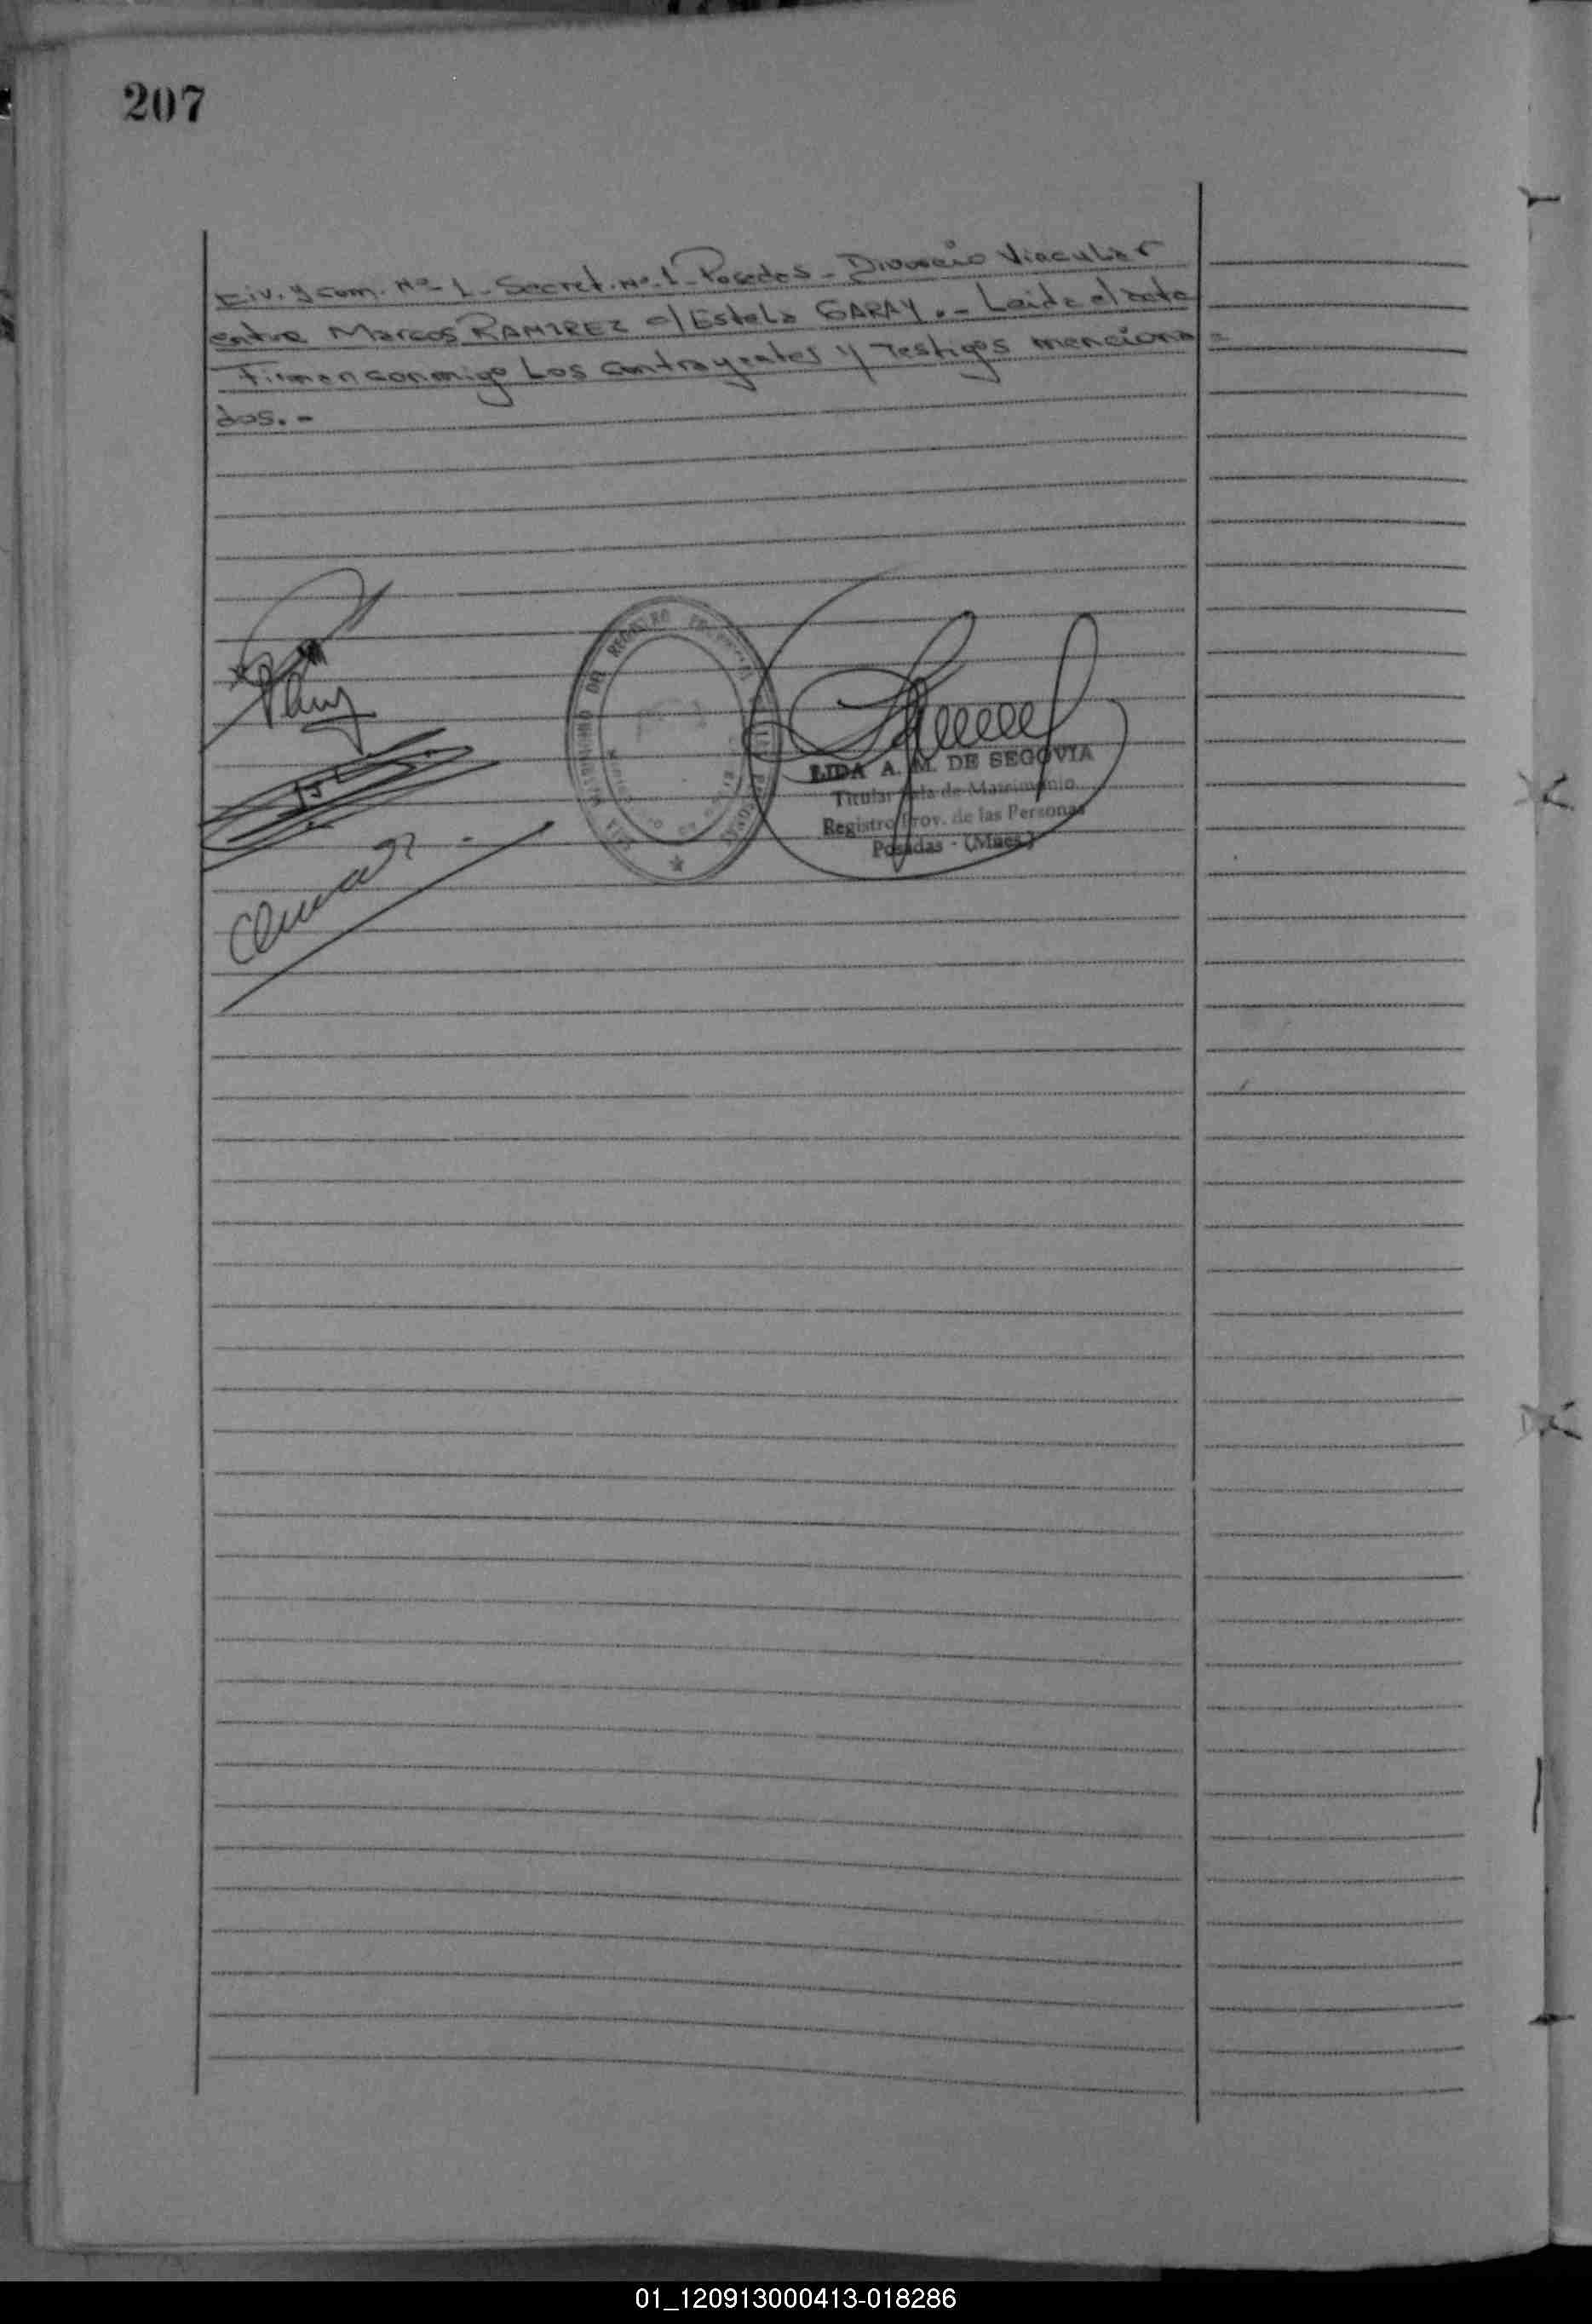 207
Civ. y Com. Nº 1 - Secret. Nº 1 - Posadas - Divorcio Vincular
entre Marcos RAMIREZ c/ Estela GARAY .- Leida el acta
Firman conmigo Los contrayentes y Testigos menciona =
dos.-
LIDA A. M. DE SEGOVIA
Titular Sala de Matrimonio
Registro Prov. de las Personas
Posadas - (Mnes.)
01_120913000413-018286